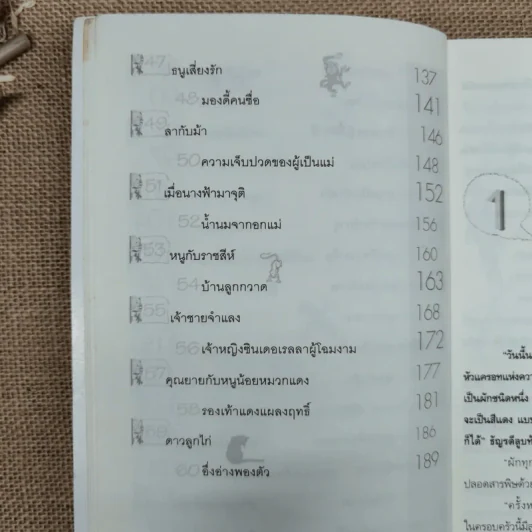 47 ธนูเสี่ยงรัก 137
48 มองดี้คนซื่อ 141
49 ลากับม้า 146
50 ความเจ็บปวดของผู้เป็นแม่ 148
51 เมื่อนางฟ้ามาจุติ 152
52 น้ำนมจากอกแม่ 156
53 หนูกับราชสีห์ 160
54 บ้านลูกกวาด 163
55 เจ้าชายจำแลง 168
56 เจ้าหญิงซินเดอเรลลาผู้โฉมงาม 172
57 คุณยายกับหนูน้อยหมวกแดง 177
58 รองเท้าแดงแผลงฤทธิ์ 181
59 ดาวลูกไก่ 186
60 อึ่งอ่างพองตัว 189
1
"วันนั้น
หัวแครอทแห่งควา
เป็นผักชนิดหนึ่ง
จะเป็นสีแดง แบบ
ก็ได้" ธัญรดีลูบห้
"ผักทุก
ปลอดสารพิษด้วย
"ครั้งห
ในครอบครัวนี้มีลู